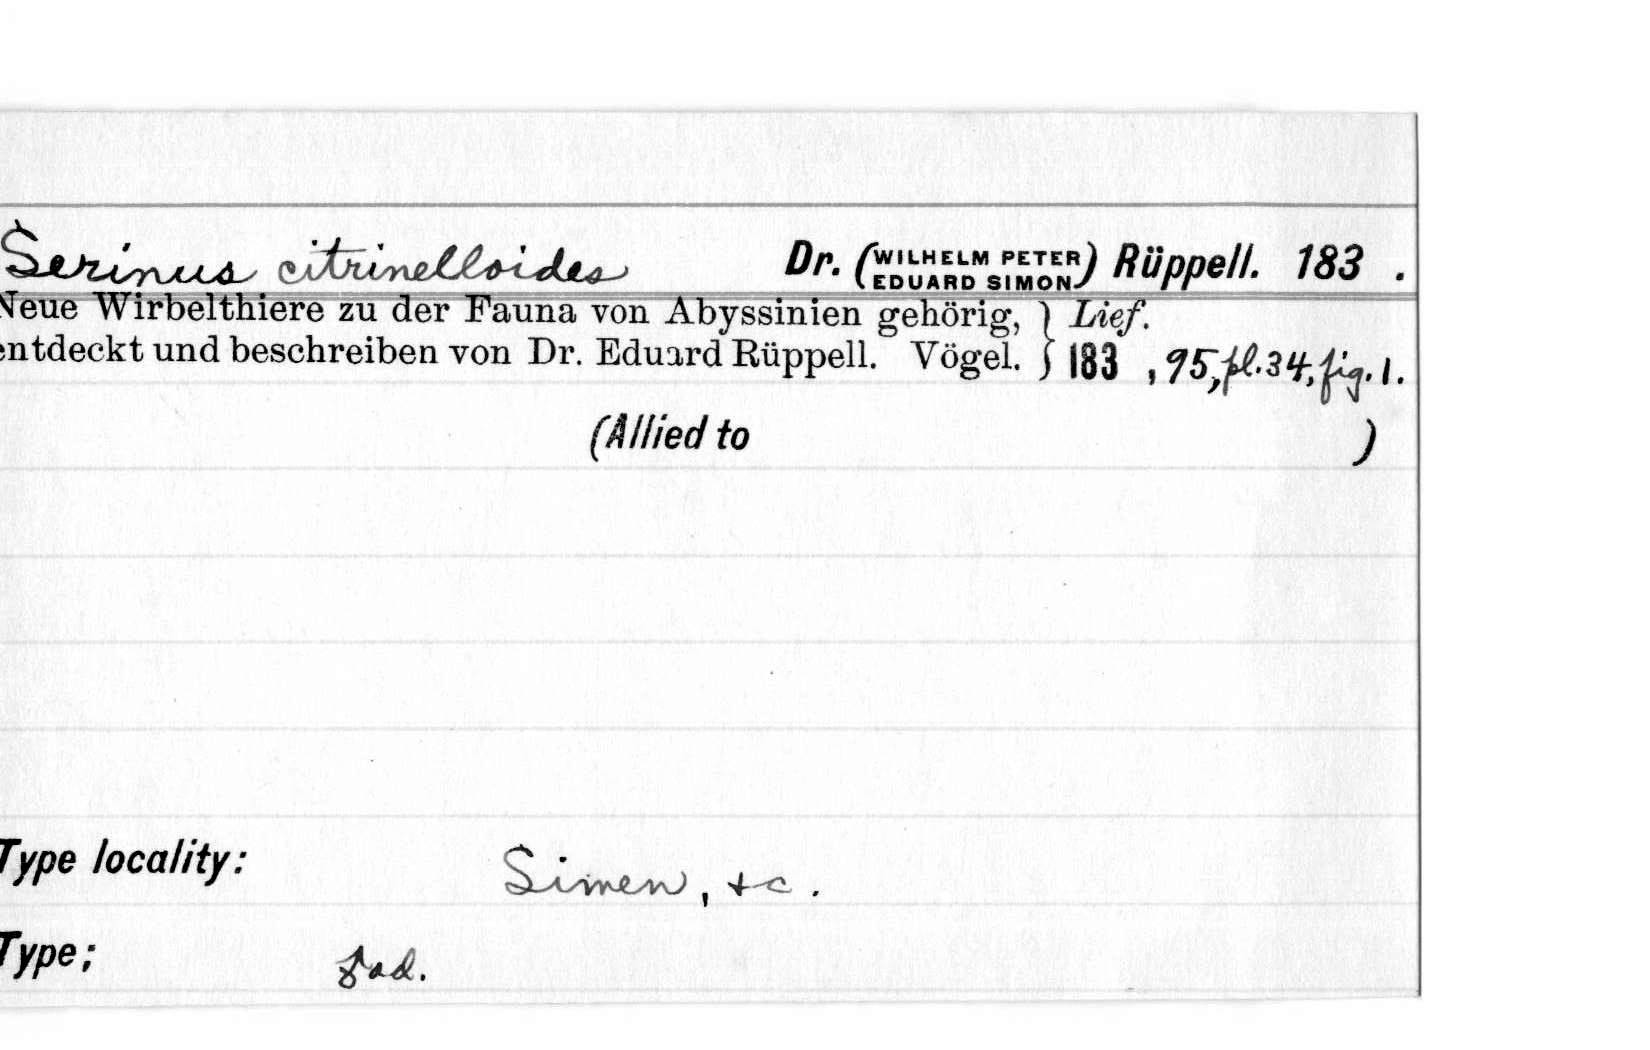 Serinus citrinelloides Dr. (WILHELM PETER EDUARD SIMON) Rüppell. 183 .
Neue Wirbelthiere zu der Fauna von Abyssinien gehörig, } Lief.
entdeckt und beschreiben von Dr. Eduard Rüppell. Vögel. } 183 , 95, pl. 34, fig. 1.
(Allied to )
Type locality: Simen, +c.
Type; ad.